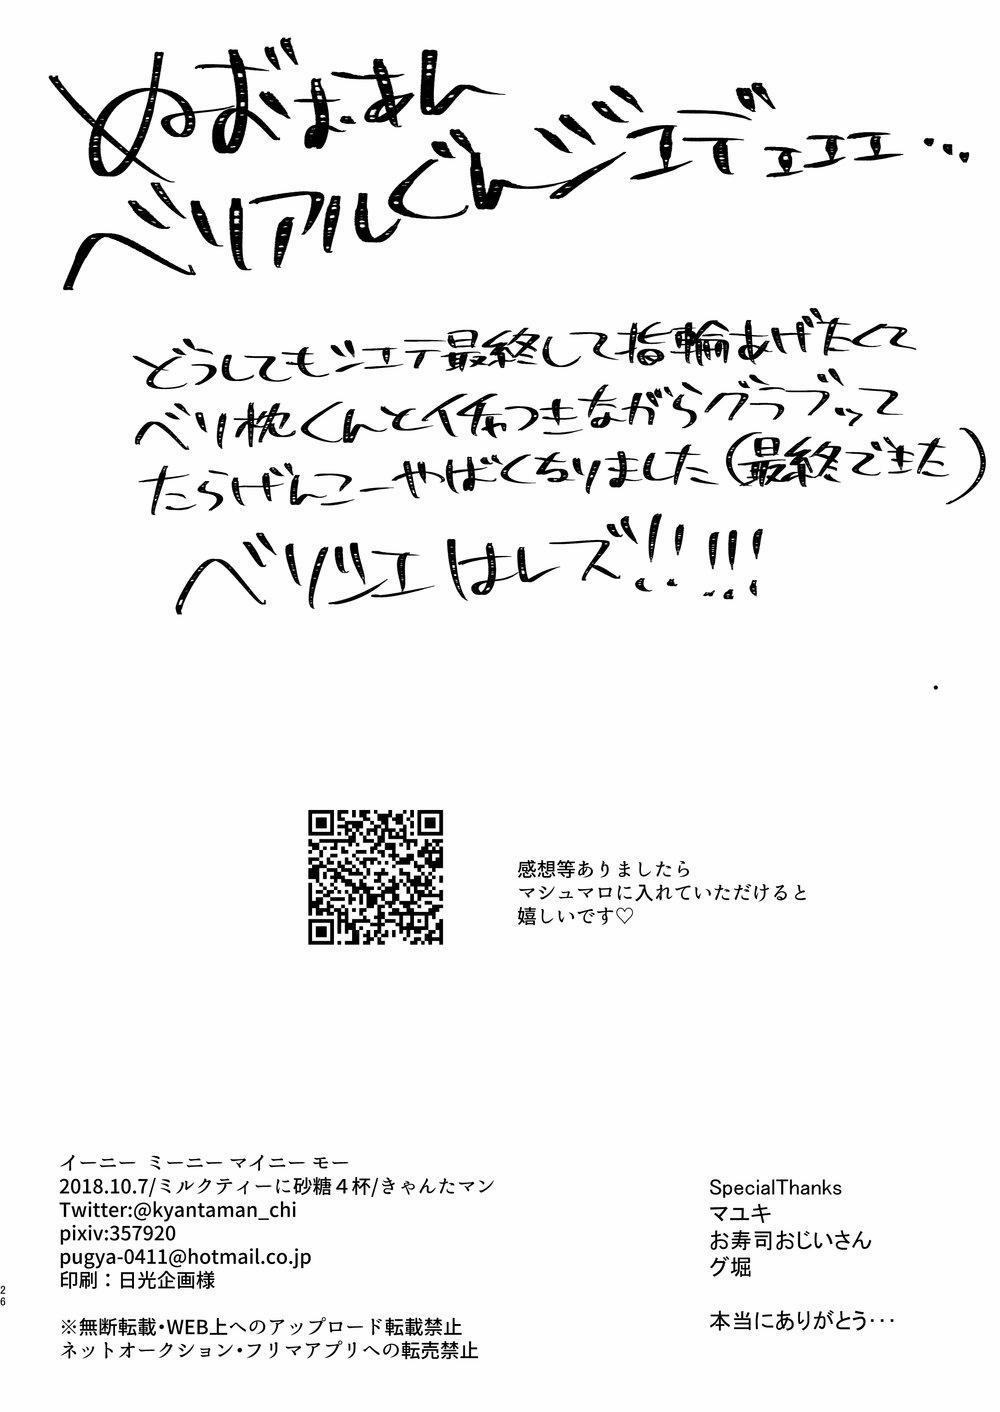 ぬおまあん
ベリアルくんジエデェエエ…
どうしてもジエテ最終して指輪あげたくて
ベリ枕くんとイチャつきながらグラブッて
たらげんこーやばくなりました(最終できた)
ベリジエはレズ!!!!!
感想等ありましたら
マシュマロに入れていただけると
嬉しいです♡
イーニー ミーニー マイニー モー
2018.10.7/ミルクティーに砂糖４杯/きゃんたマン
Twitter:@kyantaman_chi
pixiv:357920
pugya-0411@hotmail.co.jp
印刷：日光企画様
※無断転載・WEB上へのアップロード転載禁止
ネットオークション・フリマアプリへの転売禁止
SpecialThanks
マユキ
お寿司おじいさん
グ堀
本当にありがとう…
26